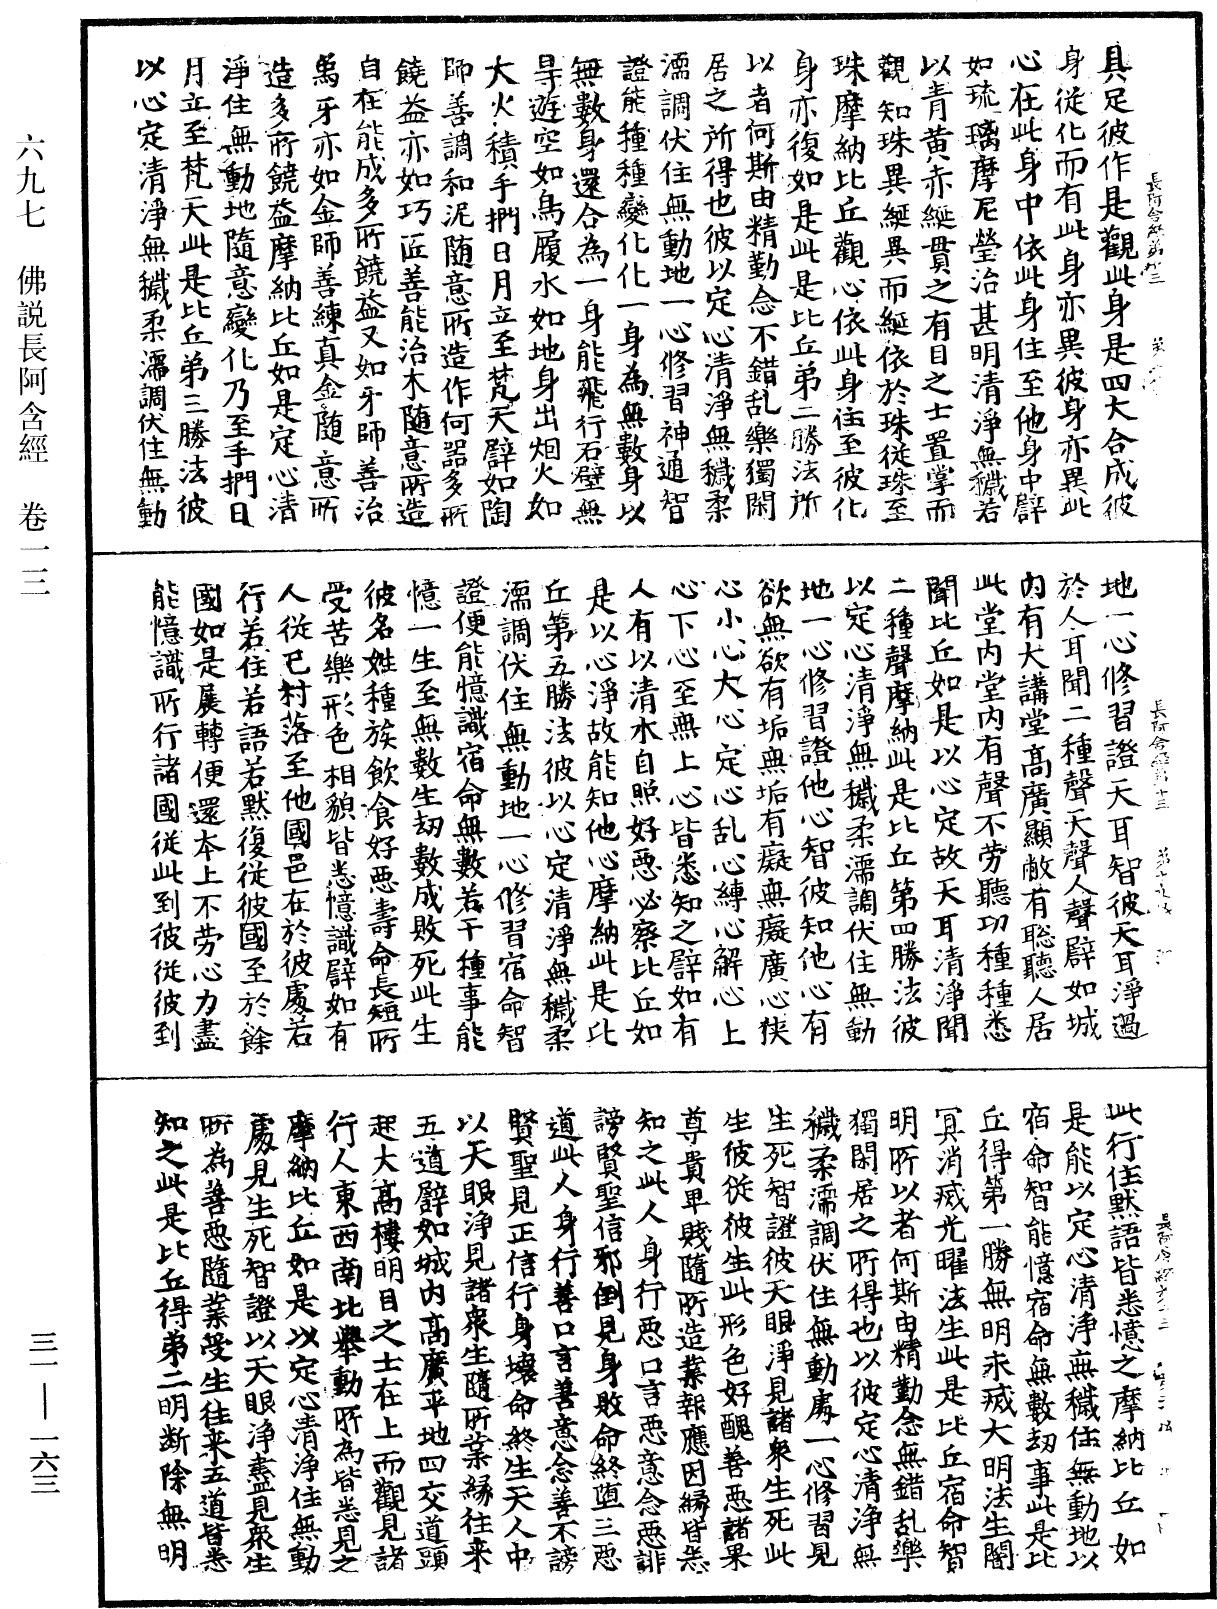 具足彼作是觀此身是四大合成彼
身從化而有此身亦異彼身亦異此
心在此身中依此身住至他身中譬
如琉璃摩尼瑩治甚明清淨無穢若
以青黃赤綖貫之有目之士置掌而
觀知珠異綖異而綖依於珠從珠至
珠摩納比丘觀心依此身住至彼化
身亦復如是此是比丘第二勝法所
以者何斯由精勤念不錯亂樂獨閑
居之所得也彼以定心清淨無穢柔
濡調伏住無動地一心修習神通智
證能種種變化變化一身為無數身以
無數身還合為一身能飛行石壁無
㝵遊空如鳥履水如地身出烟火如
大火積手捫日月立至梵天譬如陶
師善調和泥随意所造作何器多所
饒益亦如巧匠善能治木随意所造
自在能成多所饒益又如牙師善治
象牙亦如金師善練真金随意所
造多所饒益摩納比丘如是定心清
淨住無動地隨意變化乃至手捫日
月立至梵天此是比丘第三勝法彼
以心定清淨無穢柔濡調伏住無動
地一心修習證天耳智彼天耳淨過
於人耳聞二種聲天聲人聲譬如城
內有大講堂高廣顯敞有聡聽人居
此堂內堂內有聲不劳聽功種種悉
聞比丘如是以心定故天耳清淨聞
二種聲摩納此是比丘第四勝法彼
以定心清淨無穢柔濡調伏住無動
地一心修習證他心智彼知他心有
欲無欲有垢無垢有癡無癡廣心狹
心小心大心定心乱心縛心解心上
心下心至無上心皆悉知之譬如有
人有以清水自照好惡必察比丘如
是以心淨故能知他心摩納此是比
丘第五勝法彼以心定清淨無穢柔
濡調伏住無動地一心修習宿命智
證便能憶識宿命無數若干種事能
憶一生至無數生劫數成敗死此生
彼名姓種族飲食好惡壽命長短所
受苦樂形色相貌皆悉憶識譬如有
人從己村落至他國邑在於彼處若
行若住若語若默復從彼國至於餘
國如是展轉便還本土不劳心力盡
能憶識所行諸國從此到彼從彼到
此行住默語皆悉憶之摩納比丘如
是能以定心清淨無穢住無動地以
宿命智能憶宿命無數劫事此是比
丘得第一勝無明永滅大明法生闇
冥消滅光曜法生此是比丘宿命智
明所以者何斯由精勤念無錯乱樂
獨閑居之所得也以彼定心清淨無
穢柔濡調伏住無動處一心修習見
生死智證彼天眼淨見諸衆生死此
生彼從彼生此形色好醜善惡諸果
尊貴卑賤隨所造業報應因緣皆悉
知之此人身行惡口言惡意念惡誹
謗賢聖信邪倒見身敗命終墮三惡
道此人身行善口言善意念善不謗
賢聖見正信行身壞命終生天人中
以天眼淨見諸衆生隨所業緣往来
五道譬如城內高廣平地四交道頭
起大高樓明目之士在上而觀見諸
行人東西南北舉動所為皆悉見之
摩納比丘如是以定心清淨住無動
處見生死智證以天眼淨盡見衆生
所為善惡隨業受生往来五道皆悉
知之此是比丘得第二明断除無明
六九七 佛説長阿含經 卷一三
三一—一六三